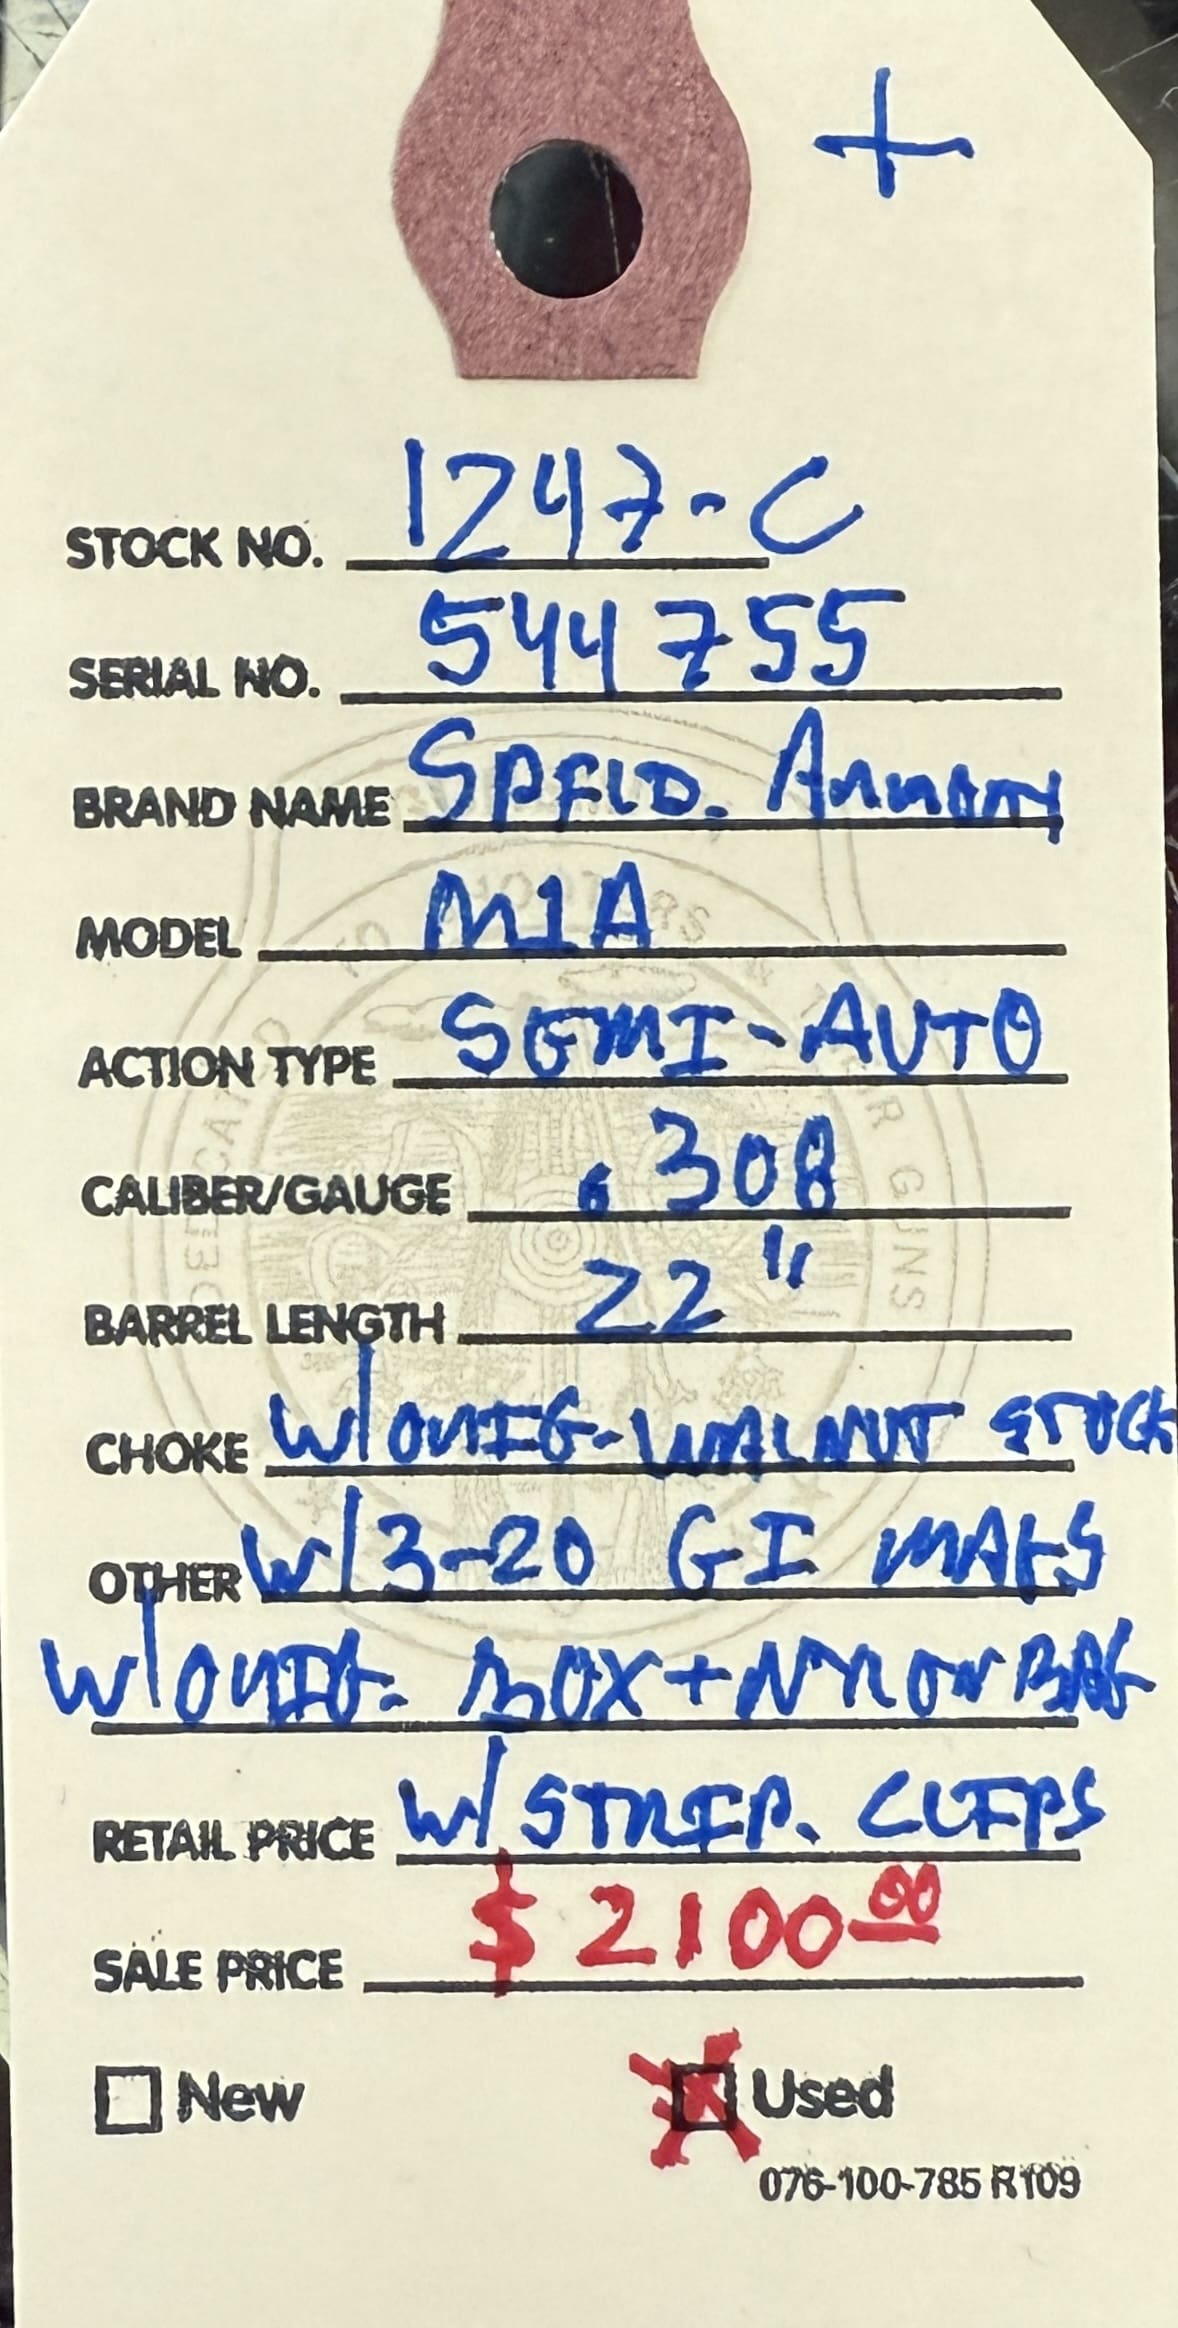 +
STOCK NO. 1247-C
SERIAL NO. 544755
BRAND NAME SPFLD. Armory
MODEL M1A
ACTION TYPE SEMI-AUTO
CALIBER/GAUGE .308
BARREL LENGTH 22"
CHOKE W/ORIG. WALNUT STOCK
OTHER W/3-20 GI MAGS
W/ORIG. BOX + NYLON BAG
RETAIL PRICE W/STRIP. CLIPS
SALE PRICE $2100.00
New Used
076-100-785 R109